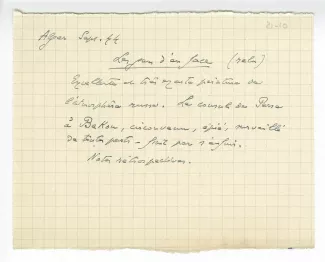 Alger Sept. 44
Les gens d'en face (relu)
Excellente et très exacte peinture de
l'atmosphère russe. Le consul de Perse
à Bakou, circonvenu, épié, surveillé
de toutes parts - finit par s'enfuir.
Notes rétrospectives.